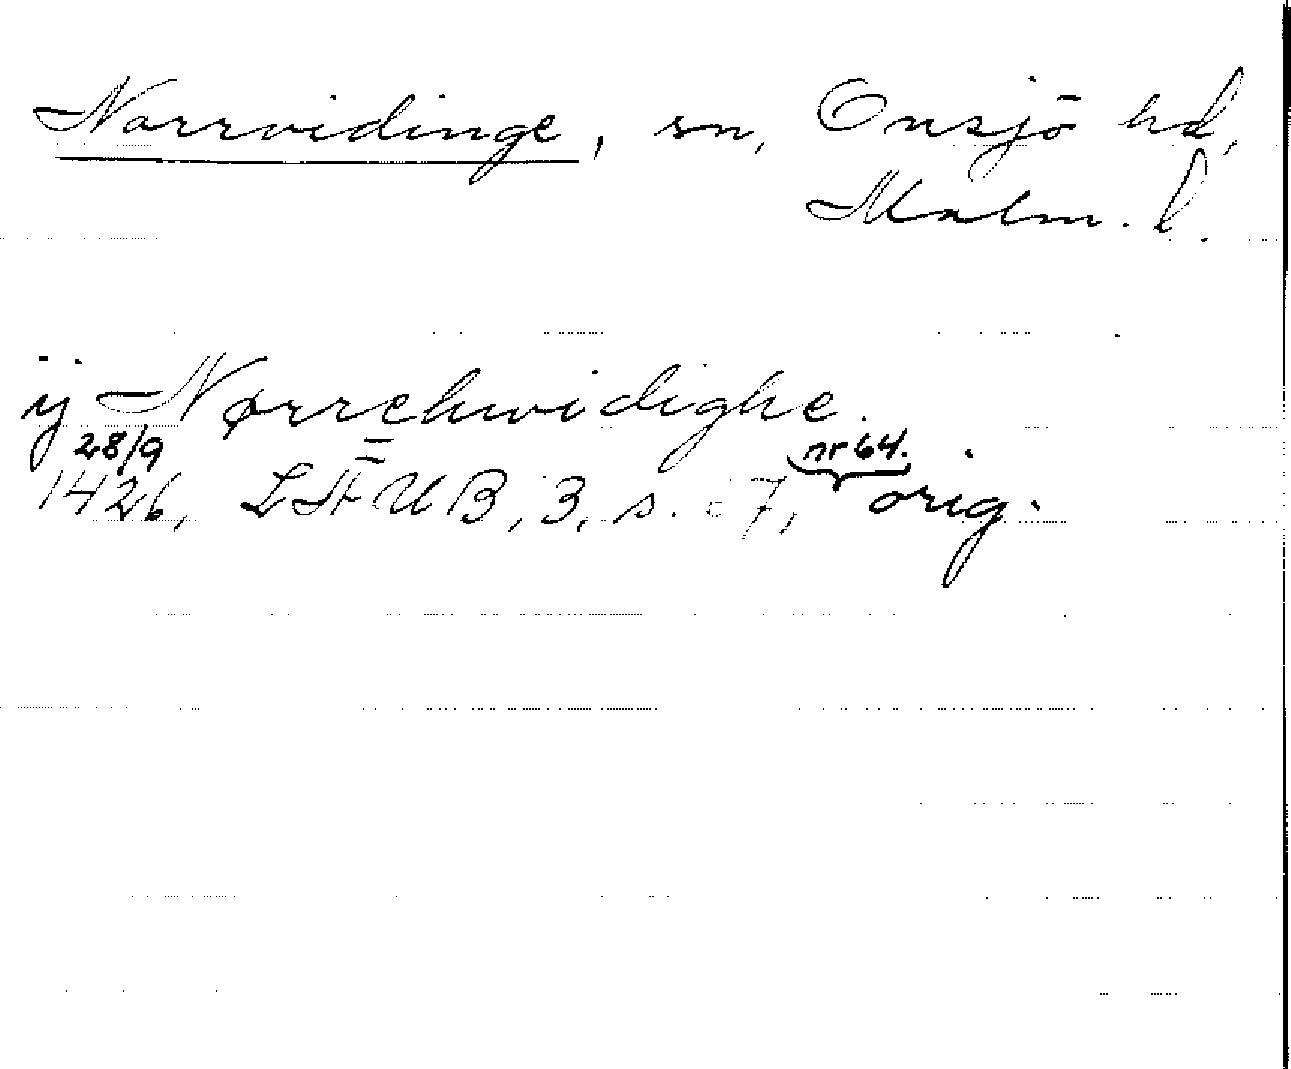 Norrvidinge, sn, Onsjö hd,
Malm. l.
ÿ Nørrehwidighe.
28/9 nr 64.
1426, LÄUB, 3, s. 7, orig.